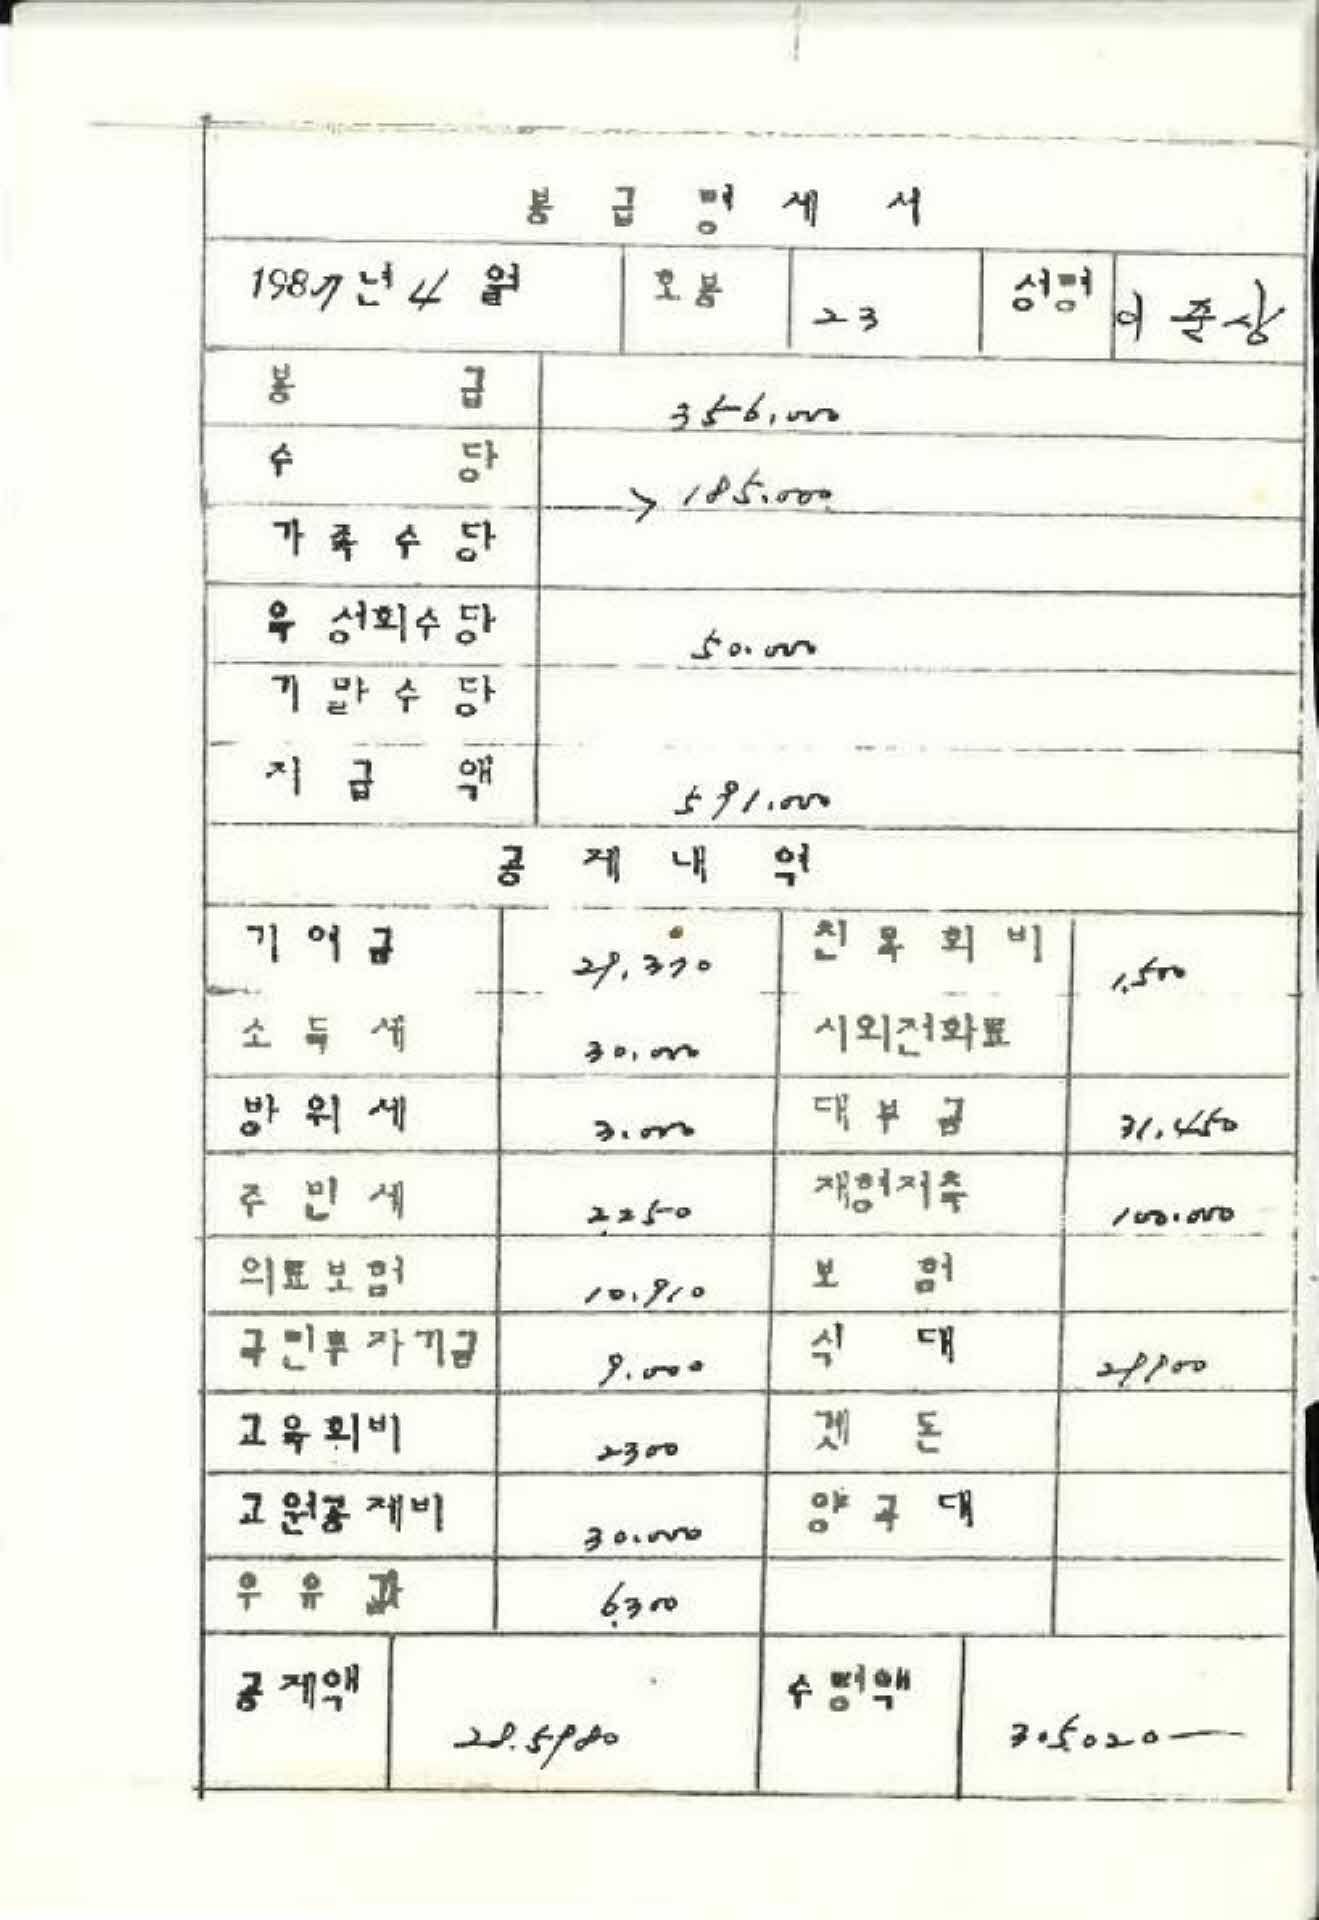 봉 급 명 세 서
1987년 4 월 호봉 23 성명 이준상
봉 급 356,000
수 당 → 185.000
가 족 수 당
육 성회수당 50.000
기 말 수 당
지 급 액 591.000
공 제 내 역
기 여 금 29,370 친 목 회 비 1,500
소 득 세 30,000 시외전화료
방 위 세 3.000 대 부 금 31,450
주 민 세 2,250 재형저축 100.000
의료보험 10,910 보 험
국민투자기금 9.000 식 대 29,900
교육회비 2300 곗 돈
교원공제비 30.000 양 곡 대
우 유 값 6,300
공제액 28.5980 수령액 305,020—